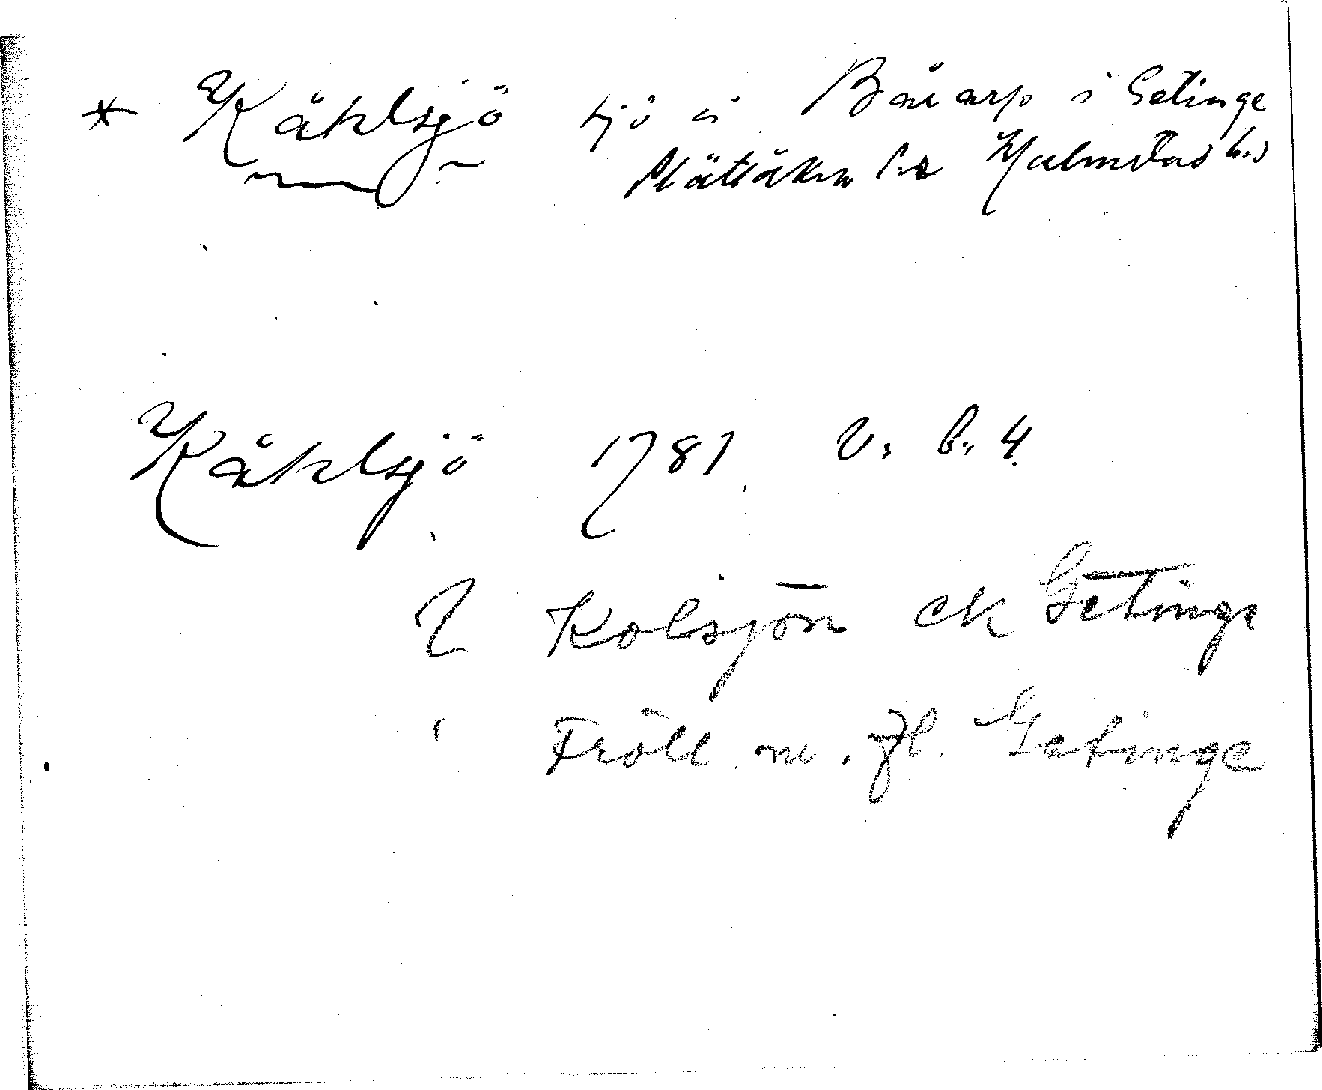 * Kåhlsjö sjö i Båvarp i Getinge
Halmstads h.d
Kåhlsjö 1781 V. b. 4.
? Kolsjön ek Getinge
Fröll m. fl. Getinge